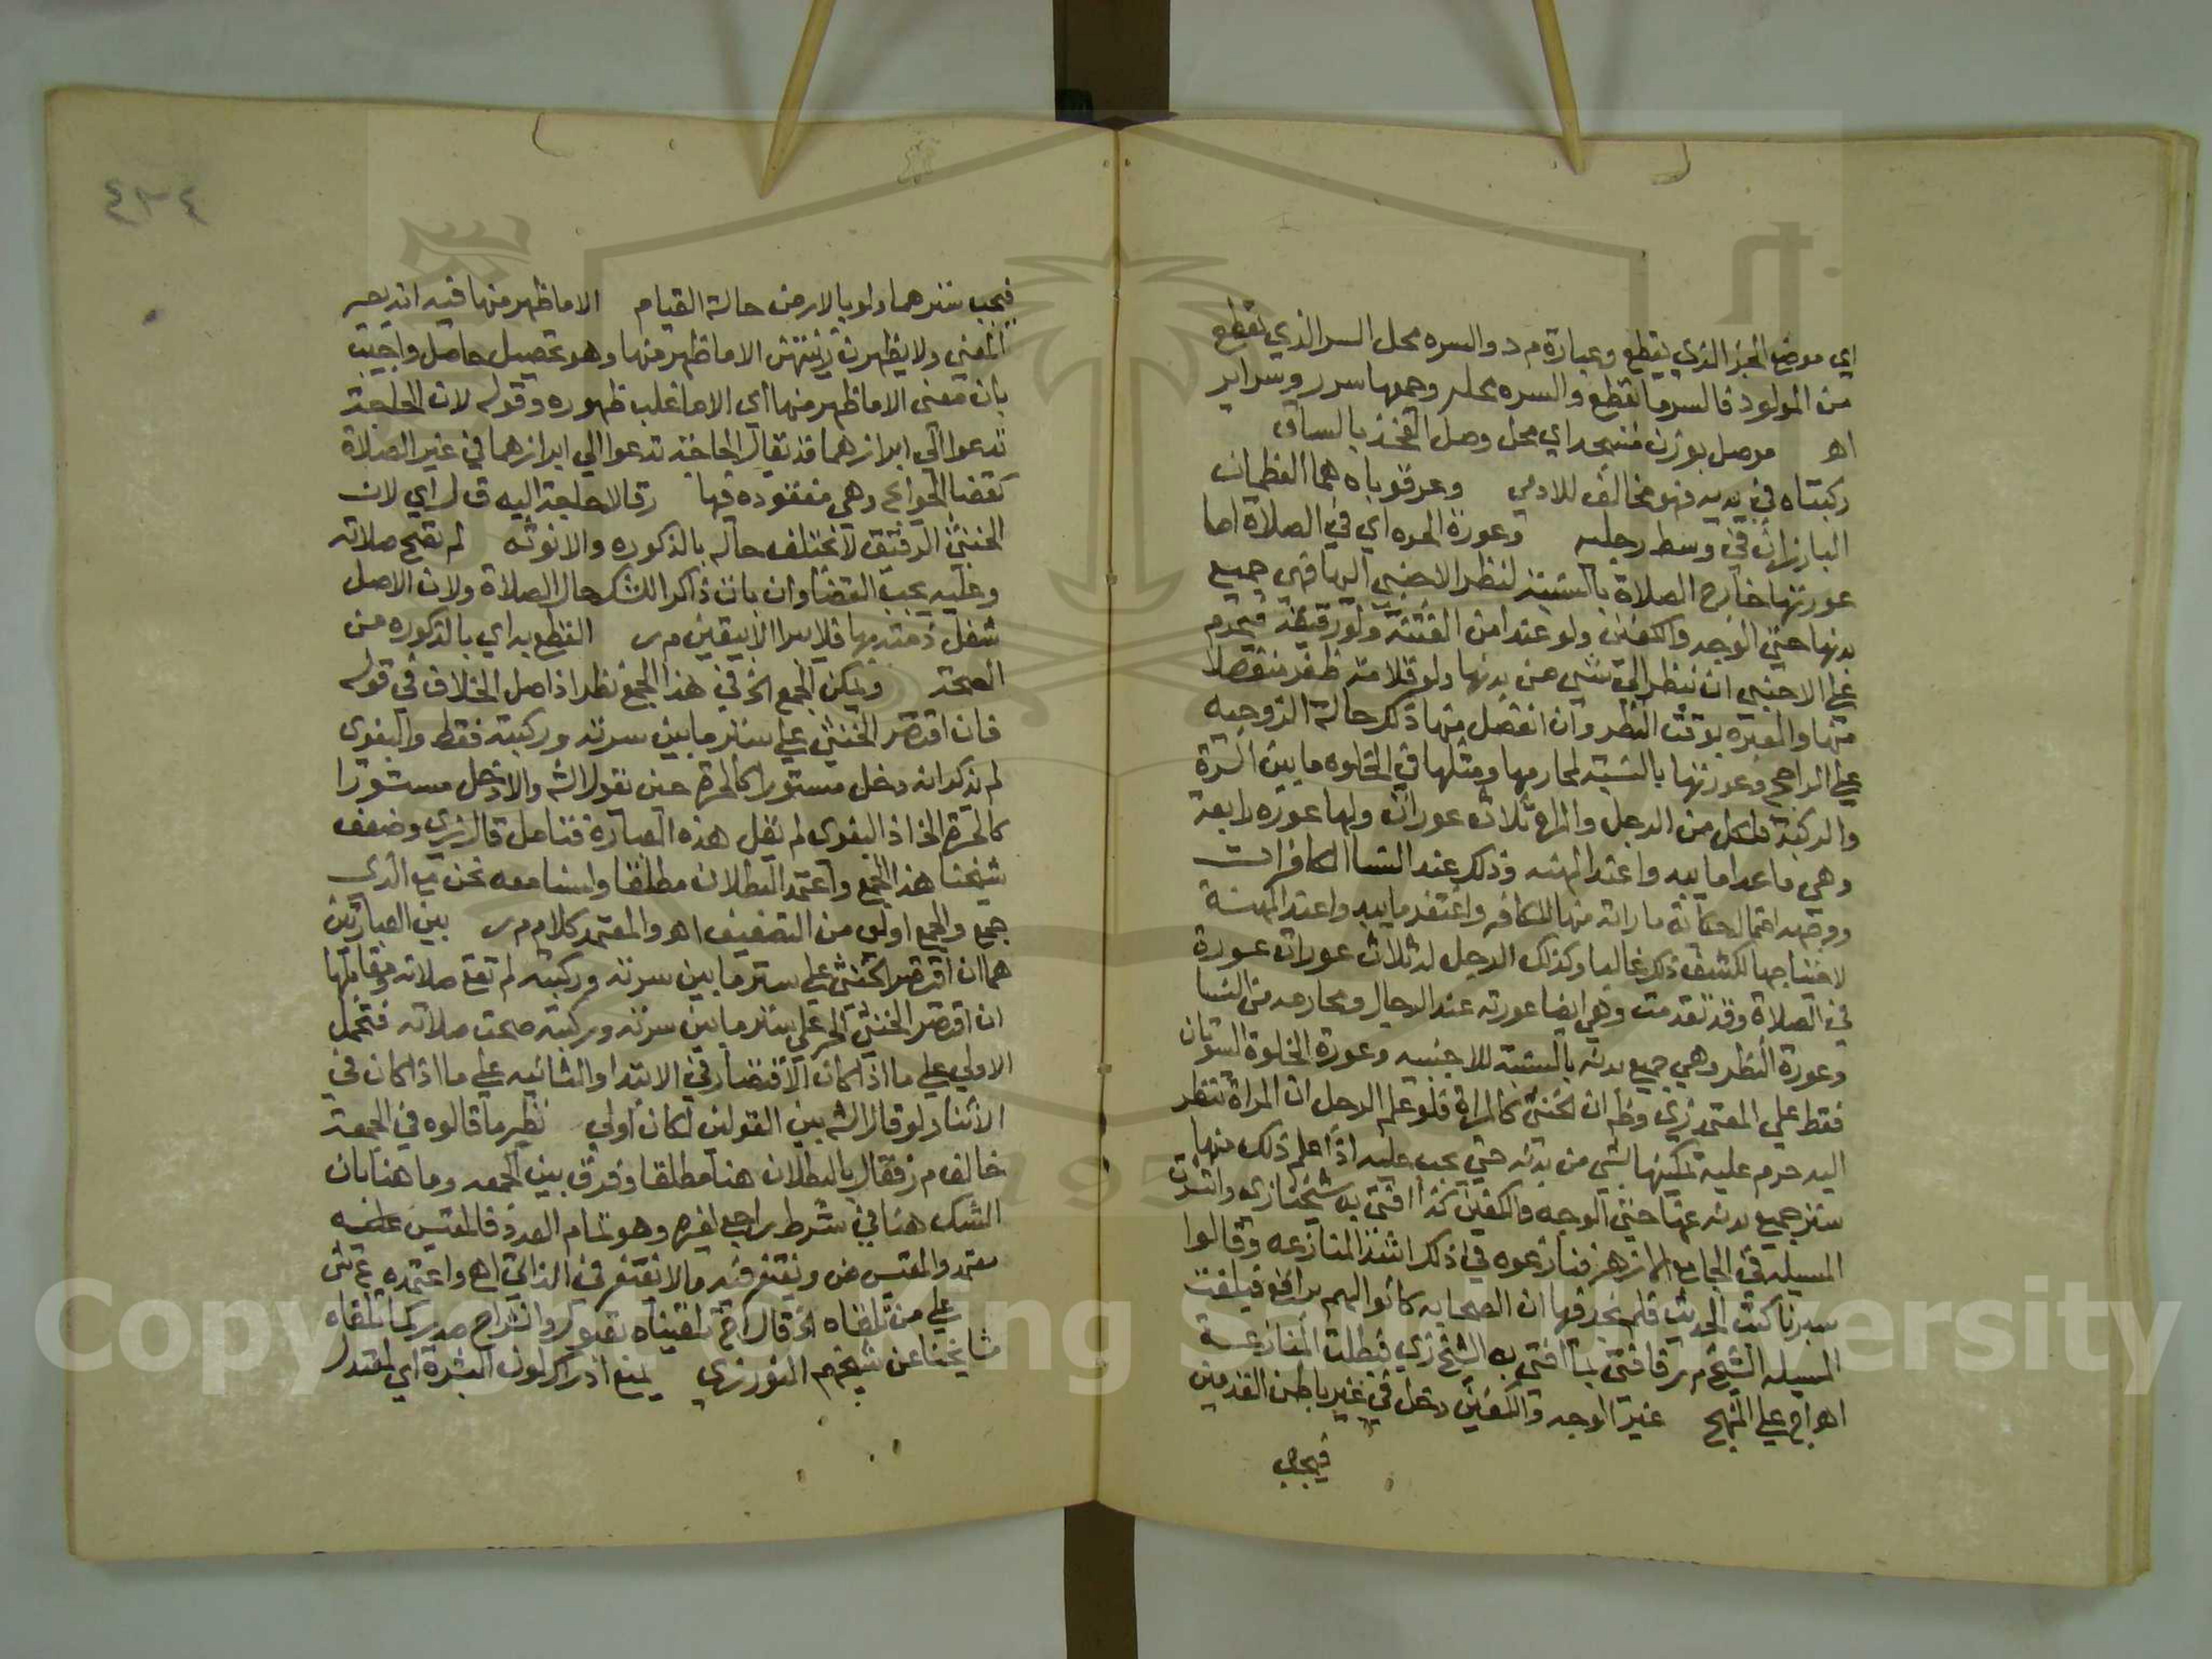 اي موضع الجزء الذي يقطع وعبارة م د والسره محل السر الذي يقطع
من المولود فالسر ما يقطع والسره محله وجمعها سرر وسراير
اه موصل بوزن مسجد اي محل وصل الفخذ بالساق
ركبتاه في يديه فهو مخالف للادمي وعرقوباه هما العظمان
البارزان في وسط رجليه وعورة الحره اي في الصلاة اما
عورتها خارج الصلاة بالنسبة لنظر الاجنبي اليها فهي جميع
بدنها حتي الوجه والكفين ولو عند امن الفتنة ولو رقيقة فيحرم
علي الاجنبي ان ينظر الي شي من بدنها ولو قلامة ظفر منفصلا
منها والعبرة بوقت النظر وان انفصل منها ذلك حالة الزوجيه
علي الراجح وعورتها بالنسبة لمحارمها ومثلها في الخلوه ما بين السرة
والركبة فلكل من الرجل والمراة ثلاث عورات ولها عوره رابعة
وهي ما عدا ما يبدو عند المهنه وذلك عند النسا الكافرات
ووجهه احتمال حكاية ما راته منها للكافر واغتفر ما يبدو عند المهنة
لاحتياجها لكشف ذلك غالبا وكذلك الرجل له ثلاث عورات عورة
في الصلاة وقد تقدمت وهي ايضا عورته عند الرجال ومحارمه من النسا
وعورة النظر وهي جميع بدنه بالنسبة للاجنبيه وعورة الخلوة السوتان
فقط علي المعتمد زي وظ ان الخنثي كالمراة فلو علم الرجل ان المراة تنظر
اليه حرم عليه تمكينها بشي من بدنه حتي يجب عليه اذا علم ذلك منها
ستر جميع بدنه عنها حتي الوجه والكفين كذا افتي به شيخنا زي واشتهرت
المسيله في الجامع الازهر فنازعوه في ذلك اشد المنازعه وقالوا
سبرنا كتب الحديث فلم نجد فيها ان الصحابه كانوا البراقع فبلغت
المسيله الشيخ م ر فافتي بما افتي به الشيخ زي فبطلت المنازعة
اه اج علي المنهج غير الوجه والكفين دخل في غير باطن القدمين
فيجب
فيجب سترهما ولو بالارض حالة القيام الا ما ظهر منها فيه انه يصير
المعني ولا يظهرن زينتهن الا ما ظهر منها وهو تحصيل حاصل واجيب
بان معني الا ما ظهر منها اي الا ما غلب ظهوره وقوله لان الحاجة
تدعوا الي ابرازهما قد يقال الحاجة تدعوا الي ابرازهما في غير الصلاة
كقضا الحوايج وهي مفقوده فيها رقا لا حاجة اليه ق ل اي لان
الخنثي الرقيق لا يختلف حاله بالذكوره والانوثه لم تصح صلاته
وعليه يجب القضا وان بان ذاكرا للشك حال الصلاة ولان الاصل
شغل ذمته بها فلا يبرا الا بيقين م ر القطع به اي بالذكوره من
الصحة ويمكن الجمع الخ في هذا الجمع نظر اذ اصل الخلاف في قوله
فان اقتصر الخنثي علي ستر ما بين سرته وركبته فقط والبغوي
لم يذكر انه دخل مستورا كالحرة حين نقول الش والا دخل مستورا
كالحرة الخ اذ البغوي لم يقل هذه العبارة فتامل قال زي وضعف
شيخنا هذا الجمع واعتمد البطلان مطلقا ولسنا معه نحن مع الذي
جمع والجمع اولي من التضعيف اه والمعتمد كلام م ر بين العبارتين
هما ان اقتصر الخنثي علي ستر ما بين سرته وركبته لم تصح صلاته ومقابلها
ان اقتصر الخنثي الحر علي ستر ما بين سرته وركبته صحت صلاته فتحمل
الاولي علي ما اذا كان الاقتصار في الابتدا والثانيه علي ما اذا كان في
الاثنا ولو قال الش بين القولين لكان اولي نظير ما قالوه في الجمعة
خالف م ر فقال بالبطلان هنا مطلقا وفرق بين الجمعه وما هنا بان
الشك هنا في شرط راجع لغيره وهو تمام العدد فالمقيس عليه
معتمد والمقيس ض ويغتفر فيه ما لا يغتفر في الذاتي اه واعتمده ع ش
علي من تلقاه الخ قال اج تلقيناه بقبول وانشراح صدر كما تلقاه
مشايخنا عن شيخهم النور زي يمنع ادراك لون البشرة اي المعتدل
٤٣٤
Copyright © King Saud University
1957